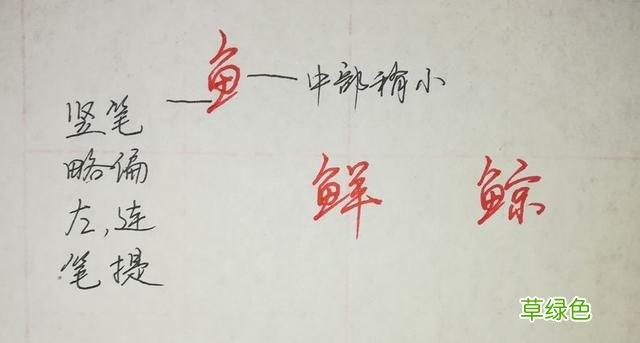 鱼 中部稍小
竖笔
略偏
左,连
笔提
鲜 鲸
草绿色